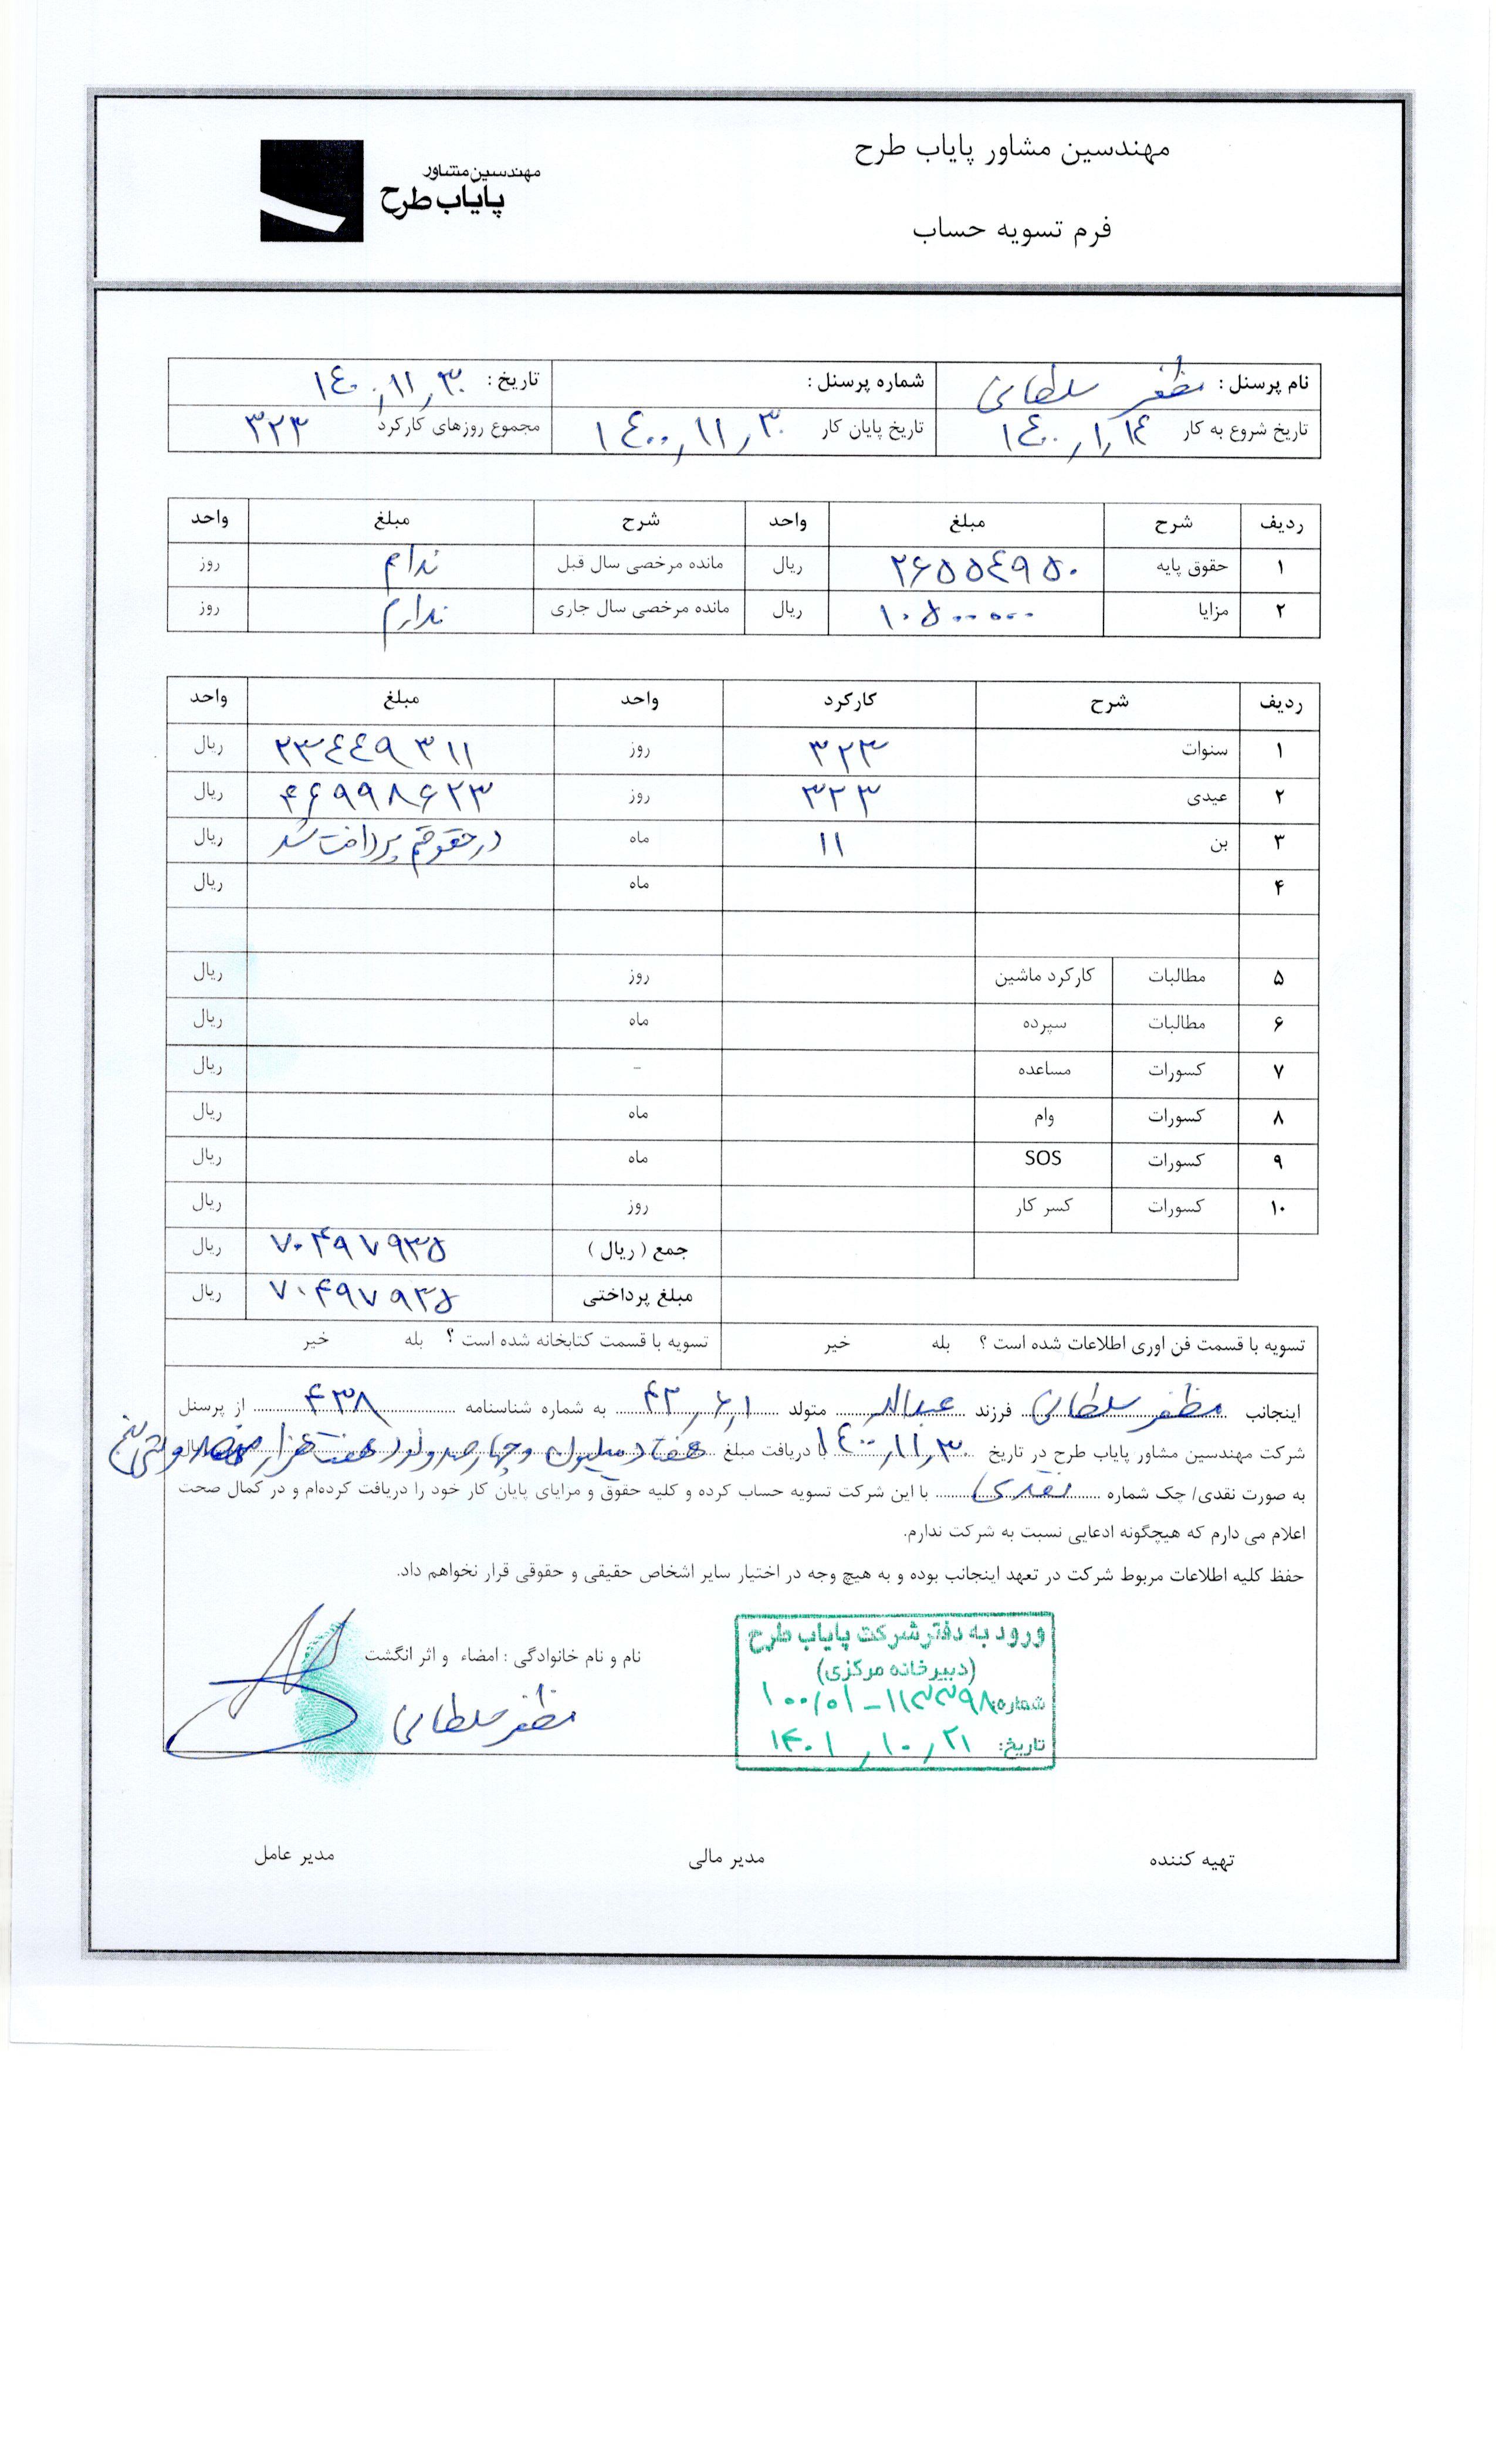 مهندسین مشاور پایاب طرح
مهندسین مشاور
پایاب طرح
فرم تسویه حساب
نام پرسنل : مظفر سلطانی شماره پرسنل : تاریخ : ۱۴۰۰,۱۱,۳۰
تاریخ شروع به کار ۱۴۰۰,۱,۱۴ تاریخ پایان کار ۱۴۰۰,۱۱,۳۰ مجموع روزهای کارکرد ۳۲۳
ردیف شرح مبلغ واحد شرح مبلغ واحد
۱ حقوق پایه ۲۶۵۵۴۹۵۰ ریال مانده مرخصی سال قبل ندارم روز
۲ مزایا ۱۰۵۰۰۰۰۰ ریال مانده مرخصی سال جاری ندارم روز
ردیف شرح کارکرد واحد مبلغ واحد
۱ سنوات ۳۲۳ روز ۲۳۴۴۹۳۱۱ ریال
۲ عیدی ۳۲۳ روز ۴۶۹۹۸۶۲۳ ریال
۳ بن ۱۱ ماه در حقوقم پرداخت شد ریال
۴ ماه ریال
۵ مطالبات کارکرد ماشین روز ریال
۶ مطالبات سپرده ماه ریال
۷ کسورات مساعده - ریال
۸ کسورات وام ماه ریال
۹ کسورات SOS ماه ریال
۱۰ کسورات کسر کار روز ریال
جمع ( ریال ) ۷۰۴۹۷۹۳۵ ریال
مبلغ پرداختی ۷۰۴۹۷۹۳۵ ریال
تسویه با قسمت فن اوری اطلاعات شده است ؟ بله خیر تسویه با قسمت کتابخانه شده است ؟ بله خیر
اینجانب مظفر سلطانی فرزند عبداله متولد ۴۲,۶,۱ به شماره شناسنامه ۴۳۸ از پرسنل
شرکت مهندسین مشاور پایاب طرح در تاریخ ۱۴۰۰,۱۱,۳۰ با دریافت مبلغ هفتاد میلیون و چهارصد و نود هفت هزار و سی پنج ریال
به صورت نقدی/ چک شماره نقدی با این شرکت تسویه حساب کرده و کلیه حقوق و مزایای پایان کار خود را دریافت کرده‌ام و در کمال صحت
اعلام می دارم که هیچگونه ادعایی نسبت به شرکت ندارم.
حفظ کلیه اطلاعات مربوط شرکت در تعهد اینجانب بوده و به هیچ وجه در اختیار سایر اشخاص حقیقی و حقوقی قرار نخواهم داد.
نام و نام خانوادگی : امضاء و اثر انگشت
مظفر سلطانی
ورود به دفتر شرکت پایاب طرح
(دبیرخانه مرکزی)
شماره: ۱۰۰/۰۱-۱۱۳۳۹۸
تاریخ: ۱۴۰۱,۱۰,۲۱
تهیه کننده مدیر مالی مدیر عامل